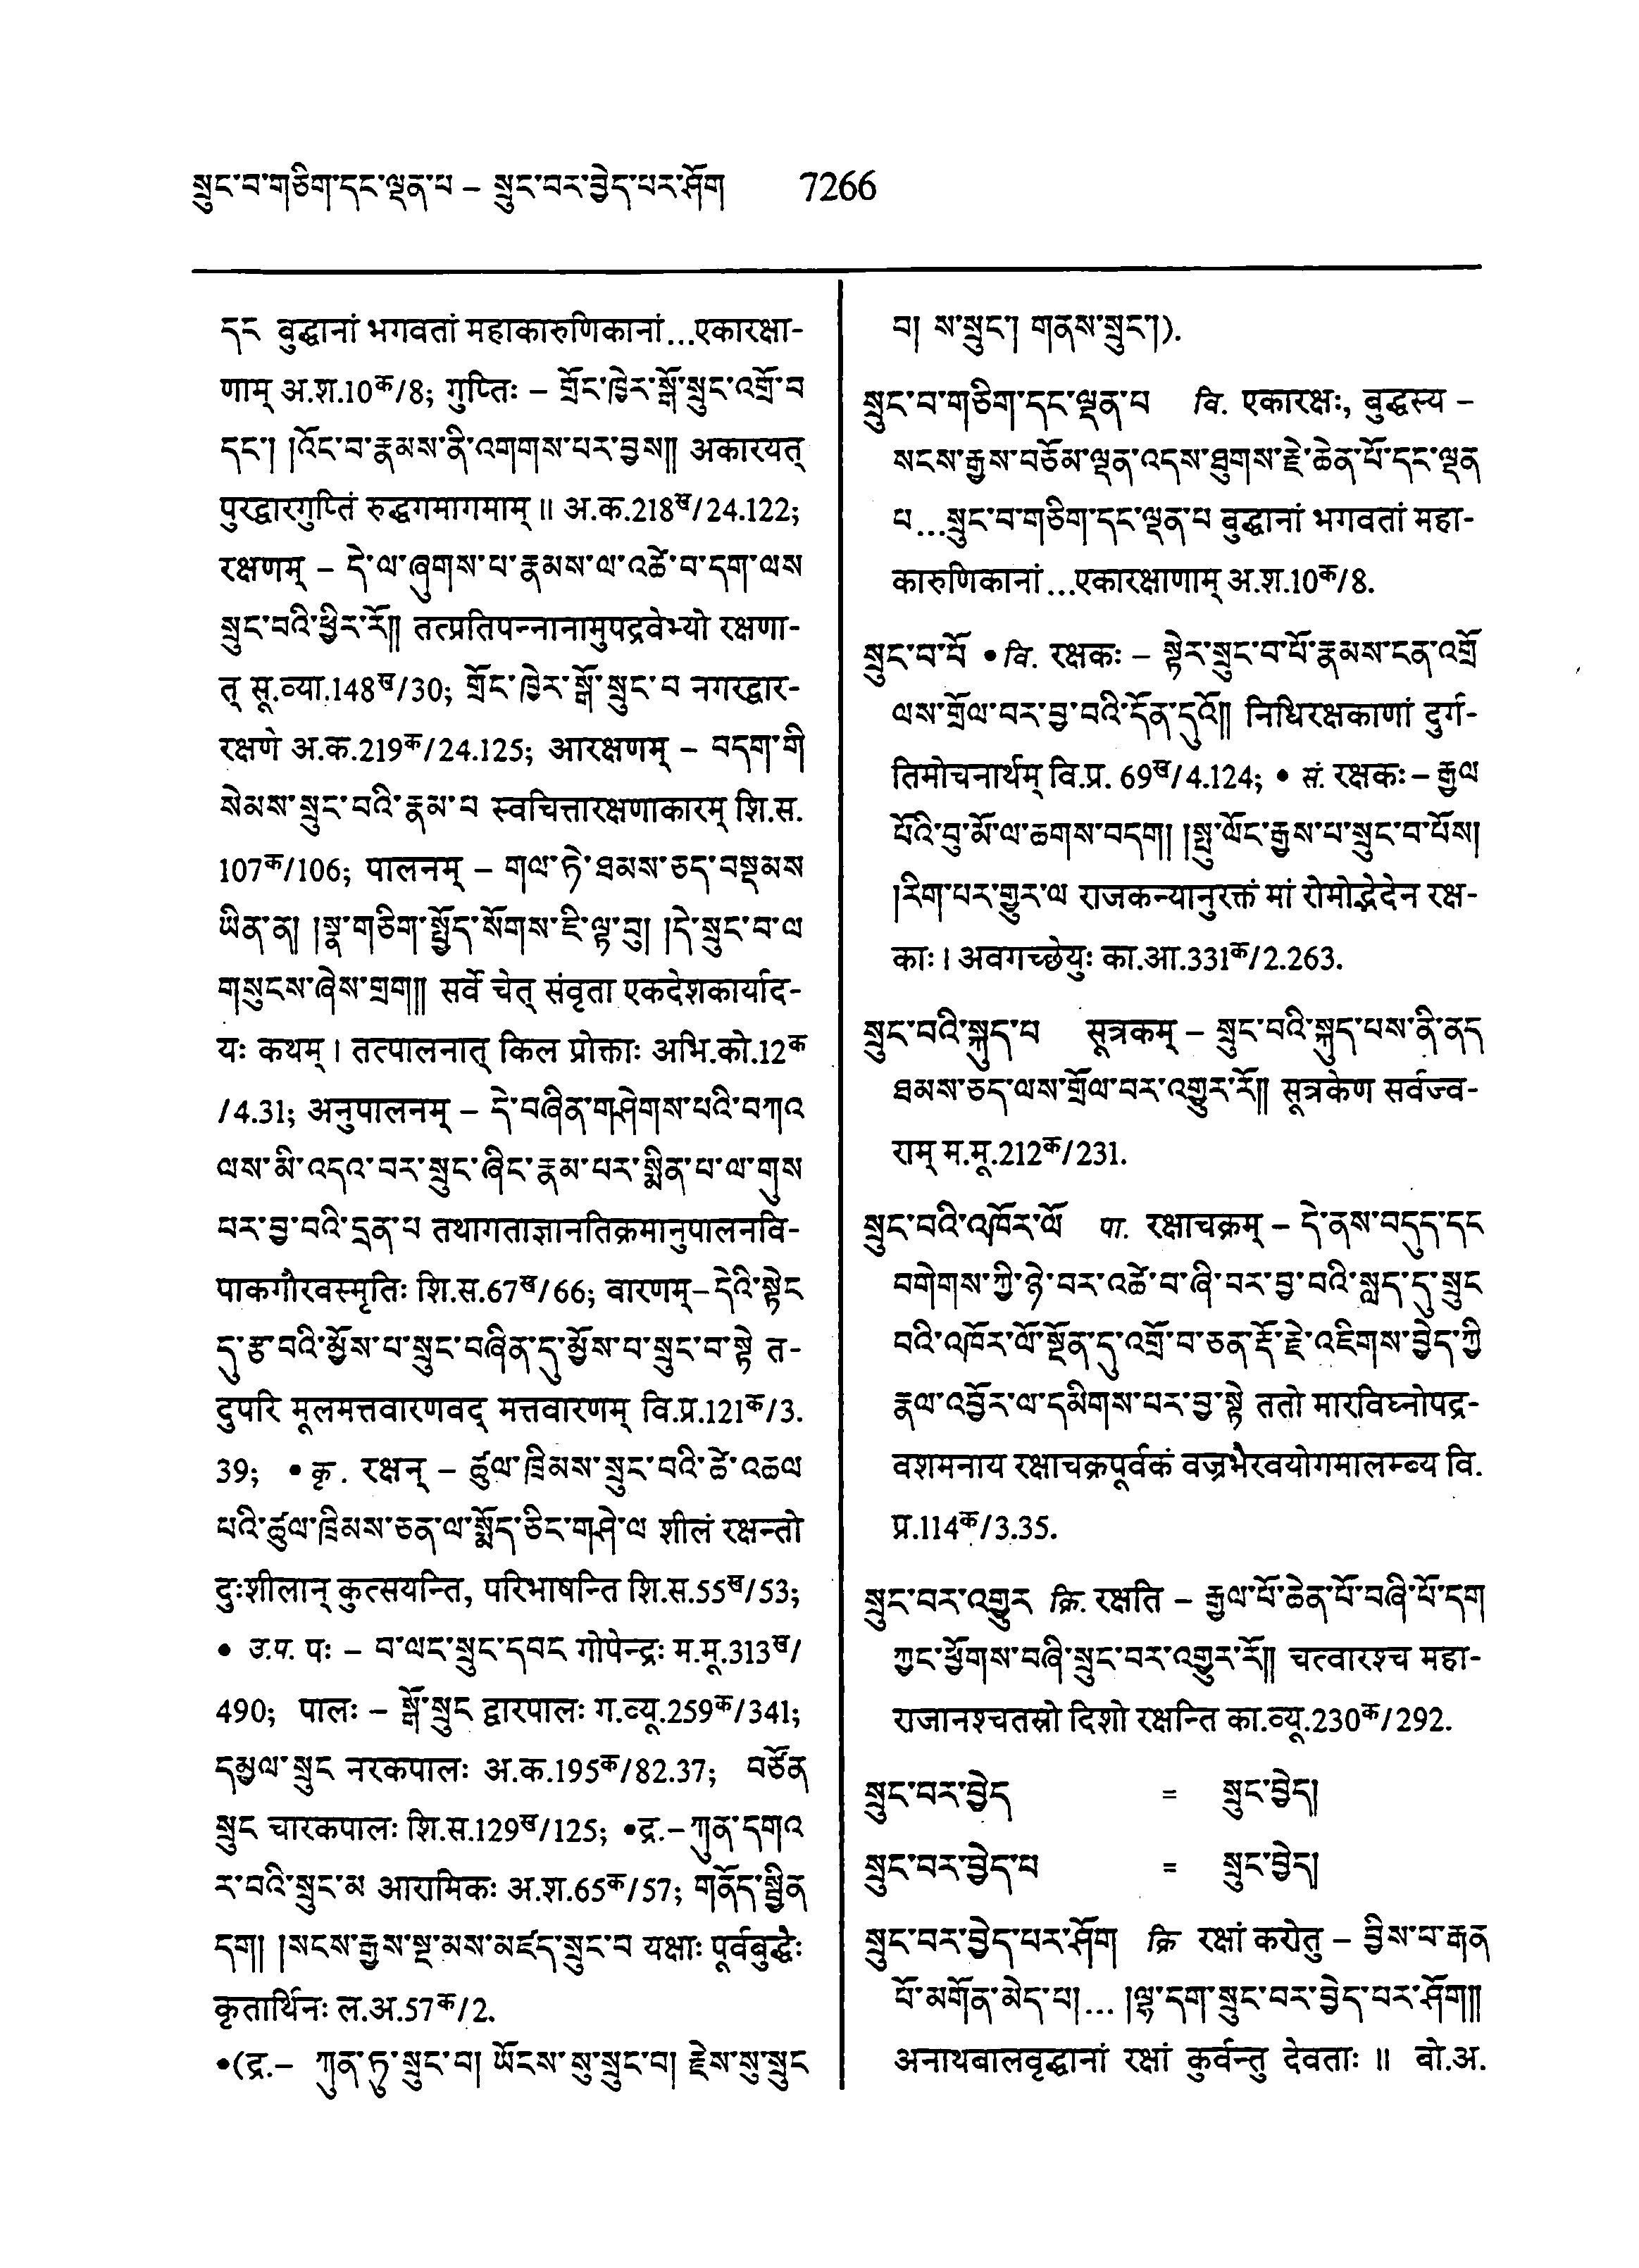 སྲུང་བ་གཅིག་དང་ལྡན་པ – སྲུང་བར་བྱེད་པར་ཤོག 7266
དང བུद्धानां भगवतां महाकारुणिकानां...एकारक्षा-
णाम् अ.श.10क/8; गुप्तिः – གྲོང་ཁྱེར་སྒོ་སྲུང་འགྲོ་བ
དང་། །འོང་བ་རྣམས་ནི་འགགས་པར་བྱས།། अकारयत्
पुरद्वारगुप्तिं रुद्धगमागमाम् ॥ अ.क.218ख/24.122;
रक्षणम् – དེ་ལ་ཞུགས་པ་རྣམས་ལ་འཚེ་བ་དག་ལས
སྲུང་བའི་ཕྱིར་རོ།། तत्प्रतिपन्नानामुपद्रवेभ्यो रक्षणा-
त् सू.व्या.148ख/30; གྲོང་ཁྱེར་སྒོ་སྲུང་བ नगरद्वार-
रक्षणे अ.क.219क/24.125; आरक्षणम् – བདག་གི
སེམས་སྲུང་བའི་རྣམ་པ स्वचित्तारक्षणाकारम् शि.स.
107क/106; पालनम् – གལ་ཏེ་ཐམས་ཅད་བསྡམས
ཡིན་ན། །སྣ་གཅིག་སྤྱོད་སོགས་ཇི་ལྟ་བུ། །དེ་སྲུང་བ་ལ
གསུངས་ཞེས་གྲག།། सर्वे चेत् संवृता एकदेशकार्याद-
यः कथम् । तत्पालनात् किल प्रोक्ताः अभि.को.12क
/4.31; अनुपालनम् – དེ་བཞིན་གཤེགས་པའི་བཀའ
ལས་མི་འདའ་བར་སྲུང་ཞིང་རྣམ་པར་སྨིན་པ་ལ་གུས
པར་བྱ་བའི་དྲན་པ तथागताज्ञानतिक्रमानुपालनवि-
पाकगौरवस्मृतिः शि.स.67ख/66; वारणम्–དེའི་སྟེང
དུ་རྩ་བའི་མྱོས་པ་སྲུང་བཞིན་དུ་མྱོས་པ་སྲུང་བ་སྟེ त-
दुपरि मूलमत्तवारणवद् मत्तवारणम् वि.प्र.121क/3.
39; • कृ. रक्षन् – ཚུལ་ཁྲིམས་སྲུང་བའི་ཚེ་འཆལ
པའི་ཚུལ་ཁྲིམས་ཅན་ལ་སྨོད་ཅིང་གཤེ་ལ शीलं रक्षन्तो
दुःशीलान् कुत्सयन्ति, परिभाषन्ति शि.स.55ख/53;
• उ.प. पः – བ་ལང་སྲུང་དབང गोपेन्द्रः म.मू.313ख/
490; पालः – སྒོ་སྲུང द्वारपालः ग.व्यू.259क/341;
དམྱལ་སྲུང नरकपालः अ.क.195क/82.37; བཙོན
སྲུང चारकपालः शि.स.129ख/125; •द्र.–ཀུན་དགའ
ར་བའི་སྲུང་མ आरामिकः अ.श.65क/57; གནོད་སྦྱིན
དག། །སངས་རྒྱས་སྔ་མས་མཛད་སྲུང་བ यक्षाः पूर्वबुद्धैः
कृतार्थिनः ल.अ.57क/2.
•(द्र.– ཀུན་ཏུ་སྲུང་བ། ཡོངས་སུ་སྲུང་བ། རྗེས་སུ་སྲུང
བ། ས་སྲུང་། གནས་སྲུང་།).
སྲུང་བ་གཅིག་དང་ལྡན་པ वि. एकारक्षः, बुद्धस्य –
སངས་རྒྱས་བཅོམ་ལྡན་འདས་ཐུགས་རྗེ་ཆེན་པོ་དང་ལྡན
པ...སྲུང་བ་གཅིག་དང་ལྡན་པ बुद्धानां भगवतां महा-
कारुणिकानां...एकारक्षाणाम् अ.श.10क/8.
སྲུང་བ་པོ • वि. रक्षकः – སྟེར་སྲུང་བ་པོ་རྣམས་ངན་འགྲོ
ལས་གྲོལ་བར་བྱ་བའི་དོན་དུའོ།། निधिरक्षकाणां दुर्ग-
तिमोचनार्थम् वि.प्र. 69ख/4.124; • सं. रक्षकः – རྒྱལ
པོའི་བུ་མོ་ལ་ཆགས་བདག། །སྤུ་ལོང་རྒྱས་པ་སྲུང་བ་པོས།
།རིག་པར་གྱུར་ལ राजकन्यानुरक्तं मां रोमोद्भेदेन रक्ष-
काः । अवगच्छेयुः का.आ.331क/2.263.
སྲུང་བའི་སྐུད་པ सूत्रकम् – སྲུང་བའི་སྐུད་པས་ནི་ནད
ཐམས་ཅད་ལས་གྲོལ་བར་འགྱུར་རོ།། सूत्रकेण सर्वज्व-
राम् म.मू.212क/231.
སྲུང་བའི་འཁོར་ལོ पा. रक्षाचक्रम् – དེ་ནས་བདུད་དང
བགེགས་ཀྱི་ཉེ་བར་འཚེ་བ་ཞི་བར་བྱ་བའི་སླད་དུ་སྲུང
བའི་འཁོར་ལོ་སྔོན་དུ་འགྲོ་བ་ཅན་རྡོ་རྗེ་འཇིགས་བྱེད་ཀྱི
རྣལ་འབྱོར་ལ་དམིགས་པར་བྱ་སྟེ ततो मारविघ्नोपद्र-
वशमनाय रक्षाचक्रपूर्वकं वज्रभैरवयोगमालम्ब्य वि.
प्र.114क/3.35.
སྲུང་བར་འགྱུར क्रि. रक्षति – རྒྱལ་པོ་ཆེན་པོ་བཞི་པོ་དག
ཀྱང་ཕྱོགས་བཞི་སྲུང་བར་འགྱུར་རོ།། चत्वारश्च महा-
राजानश्चतस्रो दिशो रक्षन्ति का.व्यू.230क/292.
སྲུང་བར་བྱེད = སྲུང་བྱེད།
སྲུང་བར་བྱེད་པ = སྲུང་བྱེད།
སྲུང་བར་བྱེད་པར་ཤོག क्रि रक्षां करोतु – བྱིས་པ་རྒན
པོ་མགོན་མེད་པ།... །ལྷ་དག་སྲུང་བར་བྱེད་པར་ཤོག།།
अनाथबालवृद्धानां रक्षां कुर्वन्तु देवताः ॥ बो.अ.